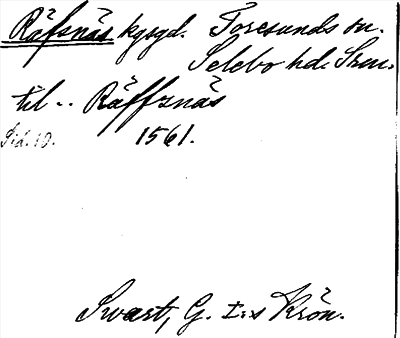 Räfsnäs kgsgd. Toresunds sn.
Selebo hd. Srm.
til .. Räffznäs
Sid. 10. 1561.
Swart, G. I:s Krön.